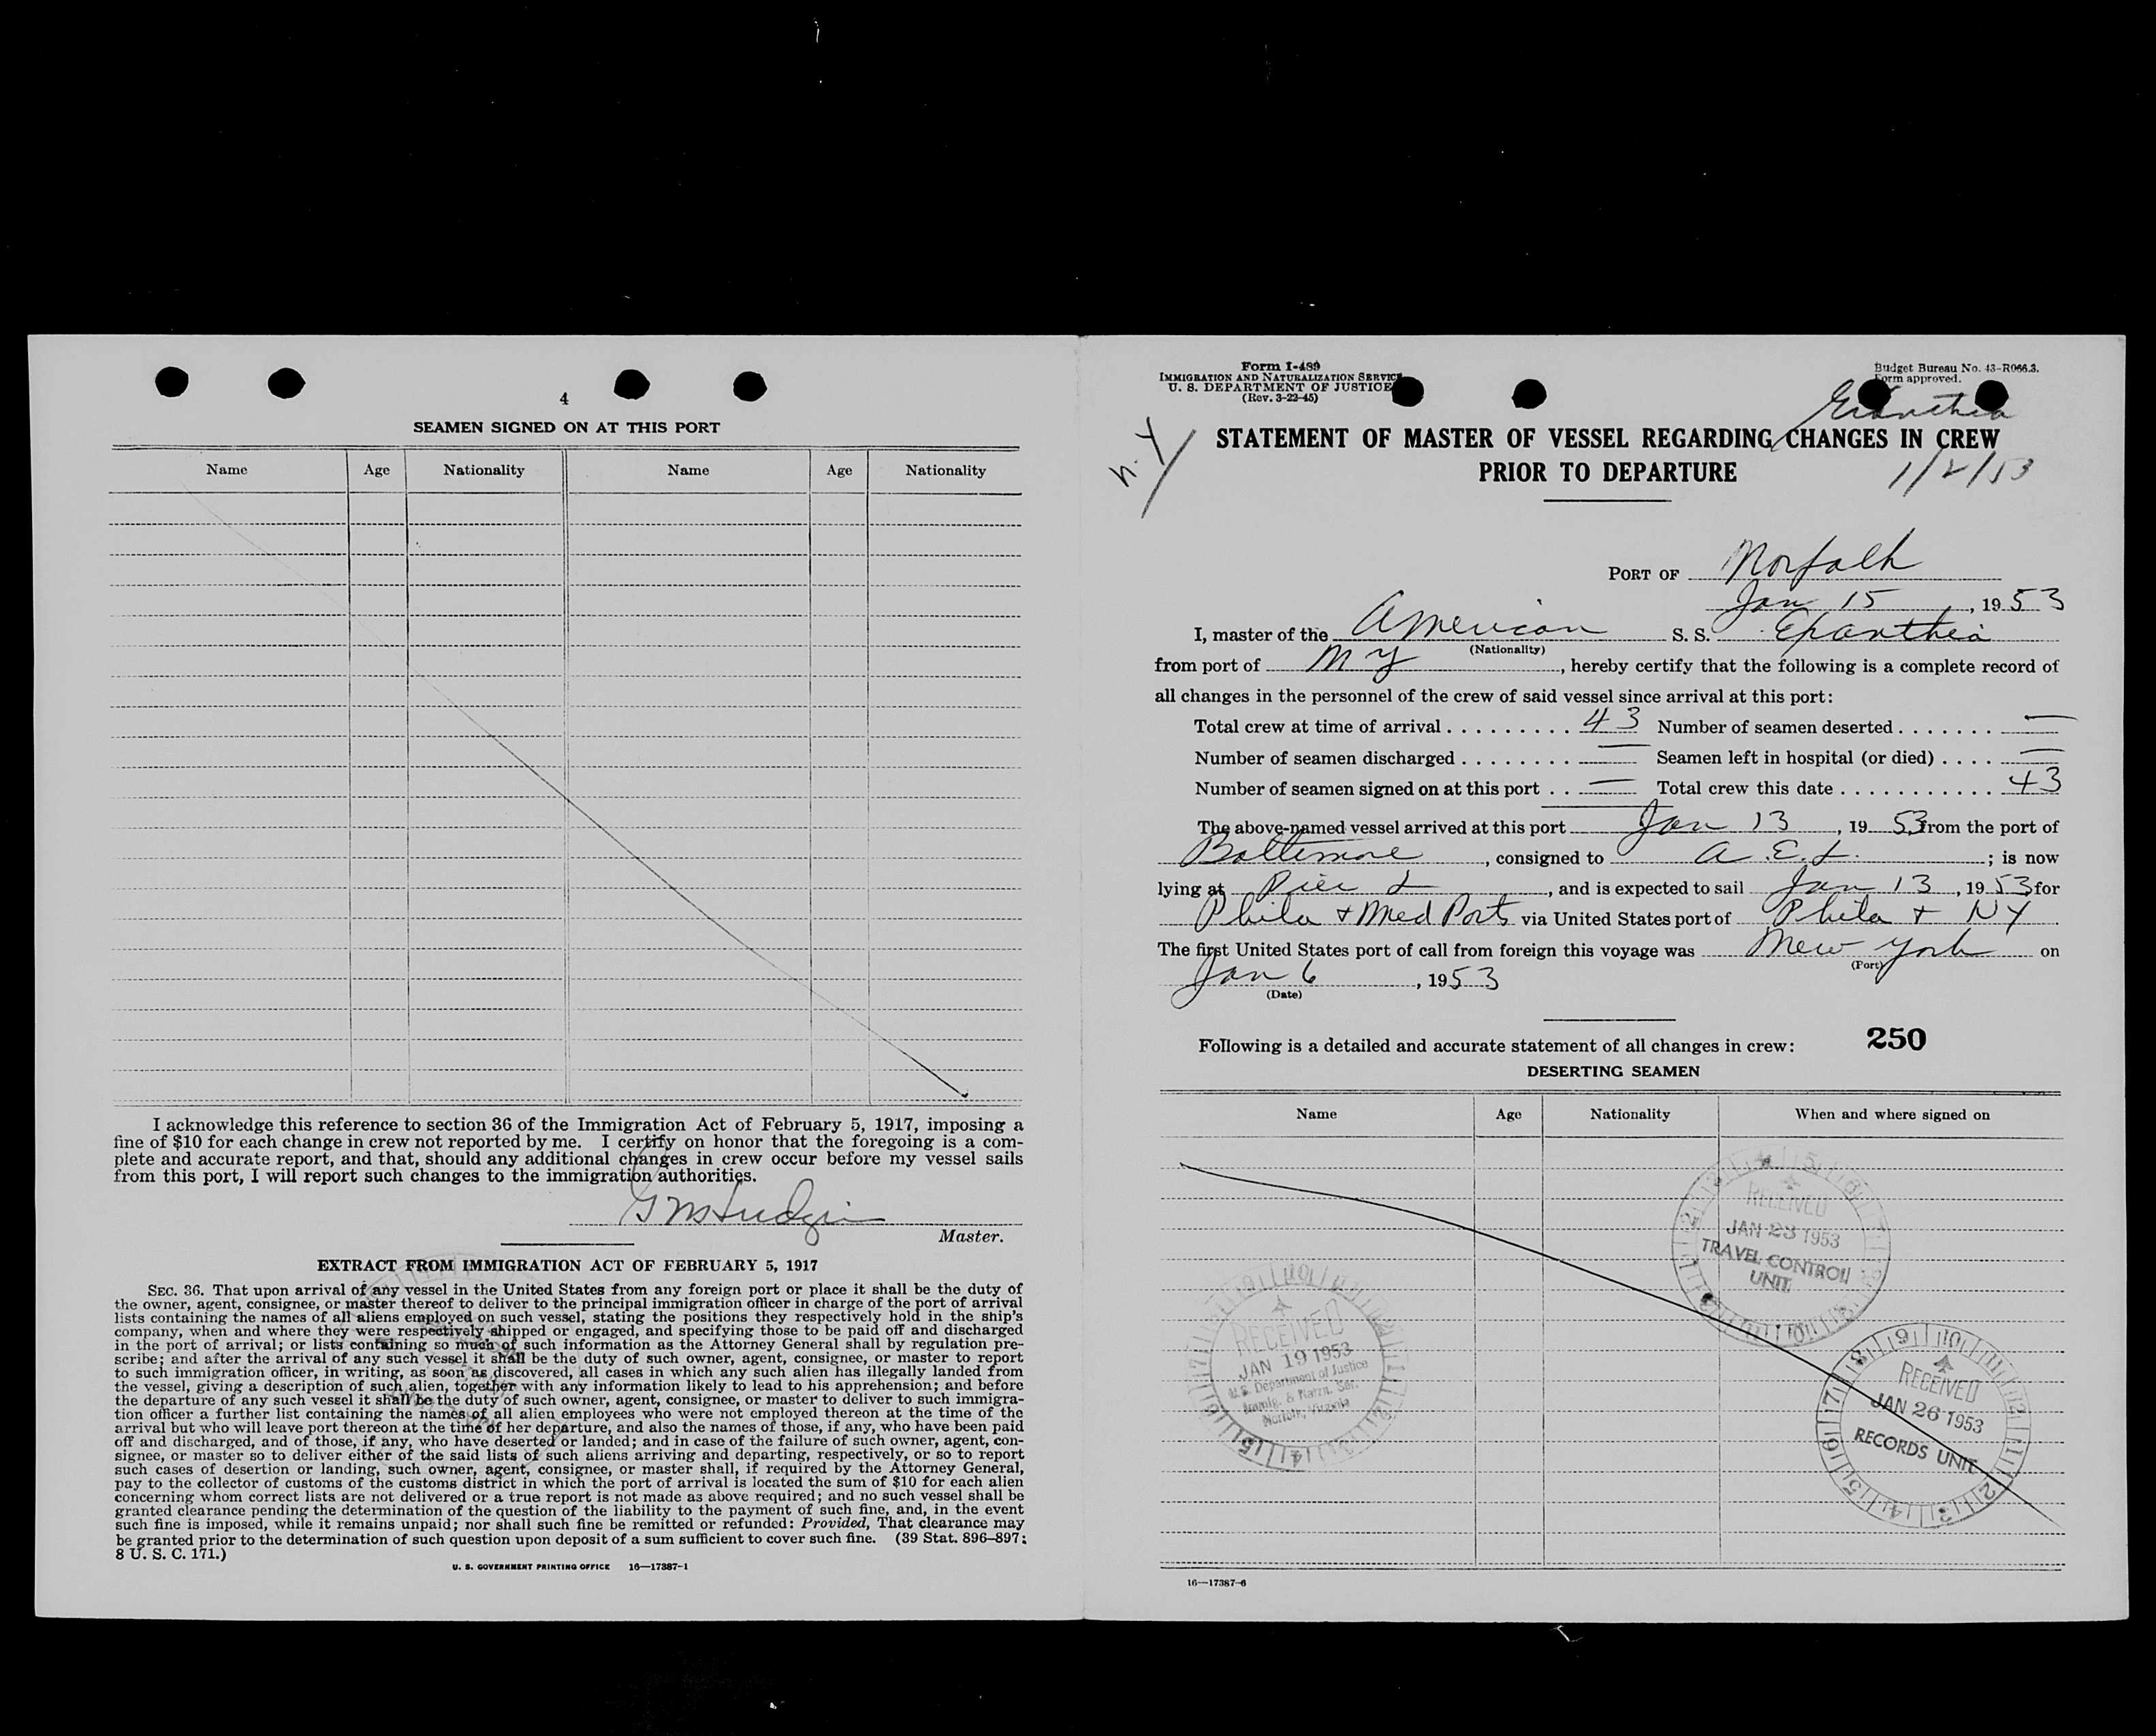 4
SEAMEN SIGNED ON AT THIS PORT
Name Age Nationality Name Age Nationality
I acknowledge this reference to section 36 of the Immigration Act of February 5, 1917, imposing a
fine of $10 for each change in crew not reported by me. I certify on honor that the foregoing is a com-
plete and accurate report, and that, should any additional changes in crew occur before my vessel sails
from this port, I will report such changes to the immigration authorities.
Master.
EXTRACT FROM IMMIGRATION ACT OF FEBRUARY 5, 1917
SEC. 36. That upon arrival of any vessel in the United States from any foreign port or place it shall be the duty of
the owner, agent, consignee, or master thereof to deliver to the principal immigration officer in charge of the port of arrival
lists containing the names of all aliens employed on such vessel, stating the positions they respectively hold in the ship's
company, when and where they were respectively shipped or engaged, and specifying those to be paid off and discharged
in the port of arrival; or lists containing so much of such information as the Attorney General shall by regulation pre-
scribe; and after the arrival of any such vessel it shall be the duty of such owner, agent, consignee, or master to report
to such immigration officer, in writing, as soon as discovered, all cases in which any such alien has illegally landed from
the vessel, giving a description of such alien, together with any information likely to lead to his apprehension; and before
the departure of any such vessel it shall be the duty of such owner, agent, consignee, or master to deliver to such immigra-
tion officer a further list containing the names of all alien employees who were not employed thereon at the time of the
arrival but who will leave port thereon at the time of her departure, and also the names of those, if any, who have been paid
off and discharged, and of those, if any, who have deserted or landed; and in case of the failure of such owner, agent, con-
signee, or master so to deliver either of the said lists of such aliens arriving and departing, respectively, or so to report
such cases of desertion or landing, such owner, agent, consignee, or master shall, if required by the Attorney General,
pay to the collector of customs of the customs district in which the port of arrival is located the sum of $10 for each alien
concerning whom correct lists are not delivered or a true report is not made as above required; and no such vessel shall be
granted clearance pending the determination of the question of the liability to the payment of such fine, and, in the event
such fine is imposed, while it remains unpaid; nor shall such fine be remitted or refunded: Provided, That clearance may
be granted prior to the determination of such question upon deposit of a sum sufficient to cover such fine. (39 Stat. 896–897;
8 U. S. C. 171.)
U. S. GOVERNMENT PRINTING OFFICE 16—17387-1
Form I-489
IMMIGRATION AND NATURALIZATION SERVICE
U. S. DEPARTMENT OF JUSTICE
(Rev. 3-22-45)
Budget Bureau No. 43-R066.3.
Form approved.
N. Y
STATEMENT OF MASTER OF VESSEL REGARDING CHANGES IN CREW
PRIOR TO DEPARTURE
1/2/53
PORT OF Norfolk
Jan 15, 1953
I, master of the American S. S. Exanthia
(Nationality)
from port of N Y, hereby certify that the following is a complete record of
all changes in the personnel of the crew of said vessel since arrival at this port:
Total crew at time of arrival . . . . . . . . . 43 Number of seamen deserted . . . . . . . —
Number of seamen discharged . . . . . . . . — Seamen left in hospital (or died) . . . . —
Number of seamen signed on at this port . . — Total crew this date . . . . . . . . . . . . 43
The above-named vessel arrived at this port Jan 13, 1953 from the port of
Baltimore, consigned to A. E. L.; is now
lying at Pier L, and is expected to sail Jan 13, 1953 for
Phila + Med Ports via United States port of Phila + NY
The first United States port of call from foreign this voyage was New York on
(Port)
Jan 6, 1953
(Date)
Following is a detailed and accurate statement of all changes in crew: 250
DESERTING SEAMEN
Name Age Nationality When and where signed on
RECEIVED
JAN 23 1953
TRAVEL CONTROL
UNIT
RECEIVED
JAN 19 1953
U.S. Department of Justice
Immig. & Natrn. Ser.
Norfolk, Virginia
RECEIVED
JAN 26 1953
RECORDS UNIT
16—17387-6